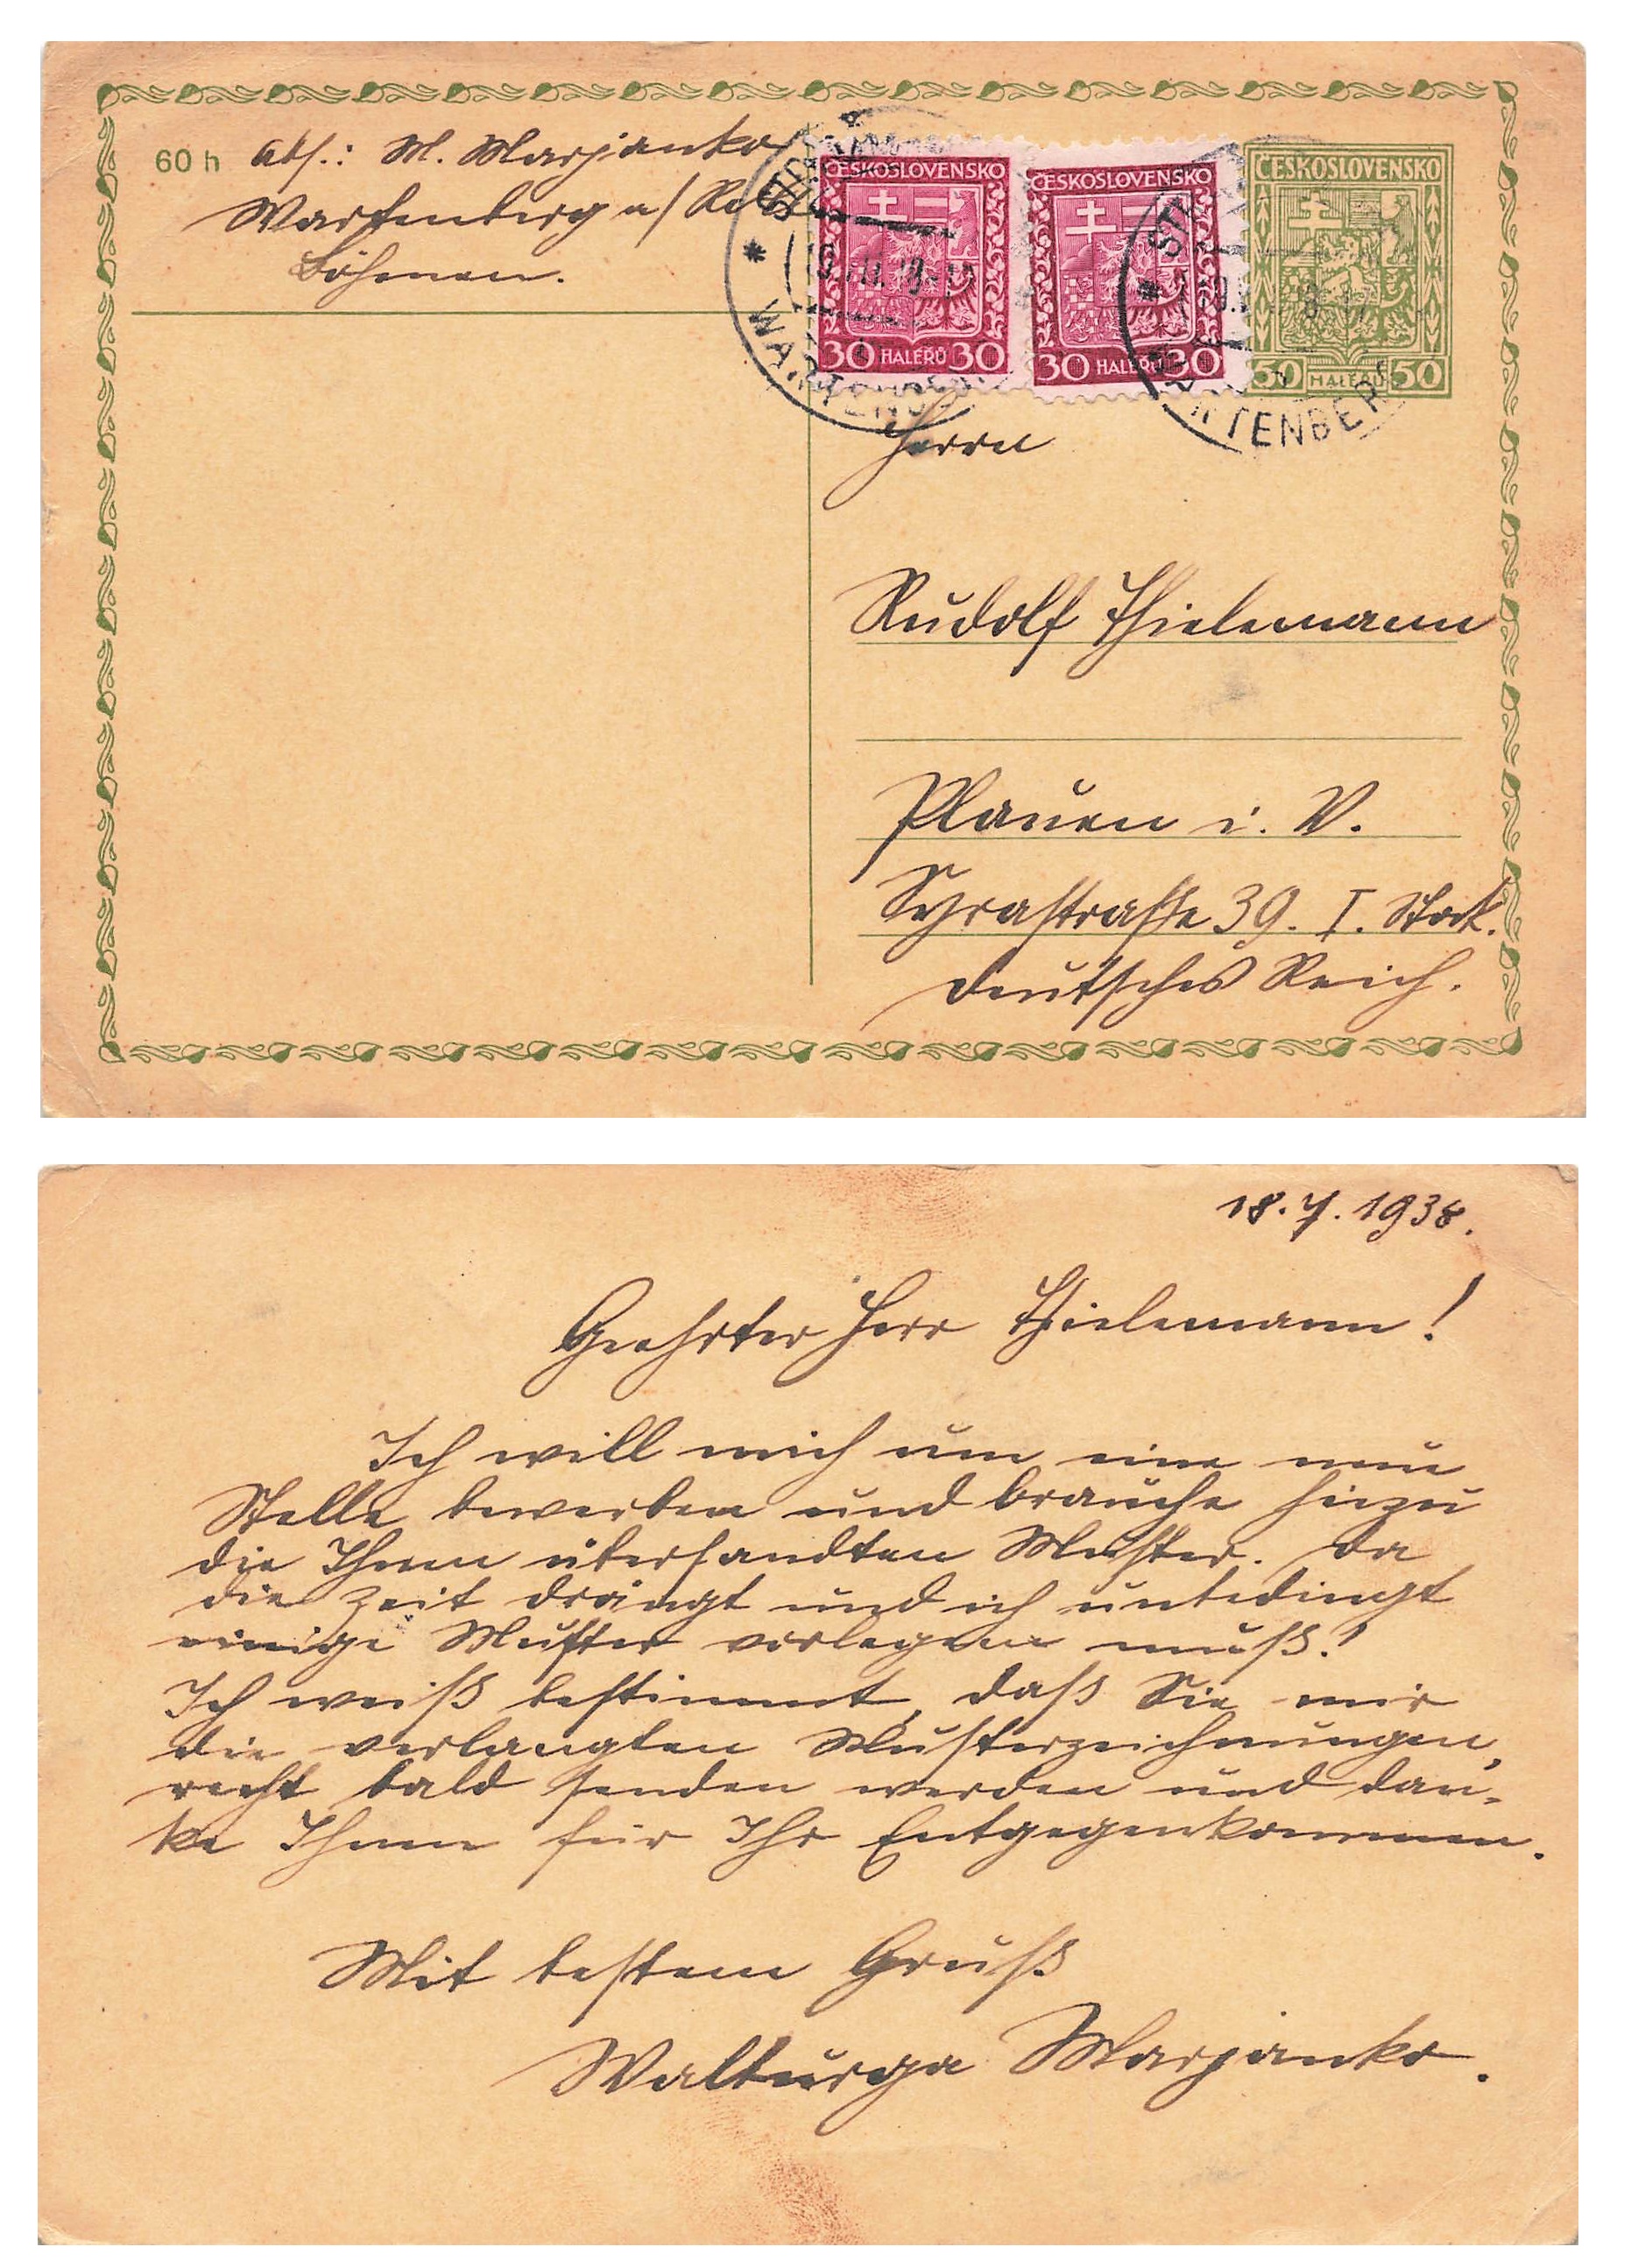 60 h Abs.: M. Marjanko
Wartenberg a/
Böhmen.
ČESKOSLOVENSKO
30 HALÉŘŮ 30
ČESKOSLOVENSKO
30 HALÉŘŮ 30
ČESKOSLOVENSKO
50 HALÉŘŮ 50
Herrn
Rudolf Thielemann
Plauen i. V.
Syrastraße 39. I. Stock.
Deutsches Reich.
18.7.1938.
Geehrter Herr Thielemann!
Ich will mich um eine neue
Stelle bewerben und brauche hiezu
die Ihnen übersandten Muster. Da
die Zeit drängt und ich unbedingt
einige Muster vorlegen muß!
Ich weiß bestimmt, daß Sie mir
die verlangten Musterzeichnungen,
recht bald senden werden und dan-
ke Ihnen für Ihr Entgegenkommen.
Mit bestem Gruß
Walburga Marjanko.